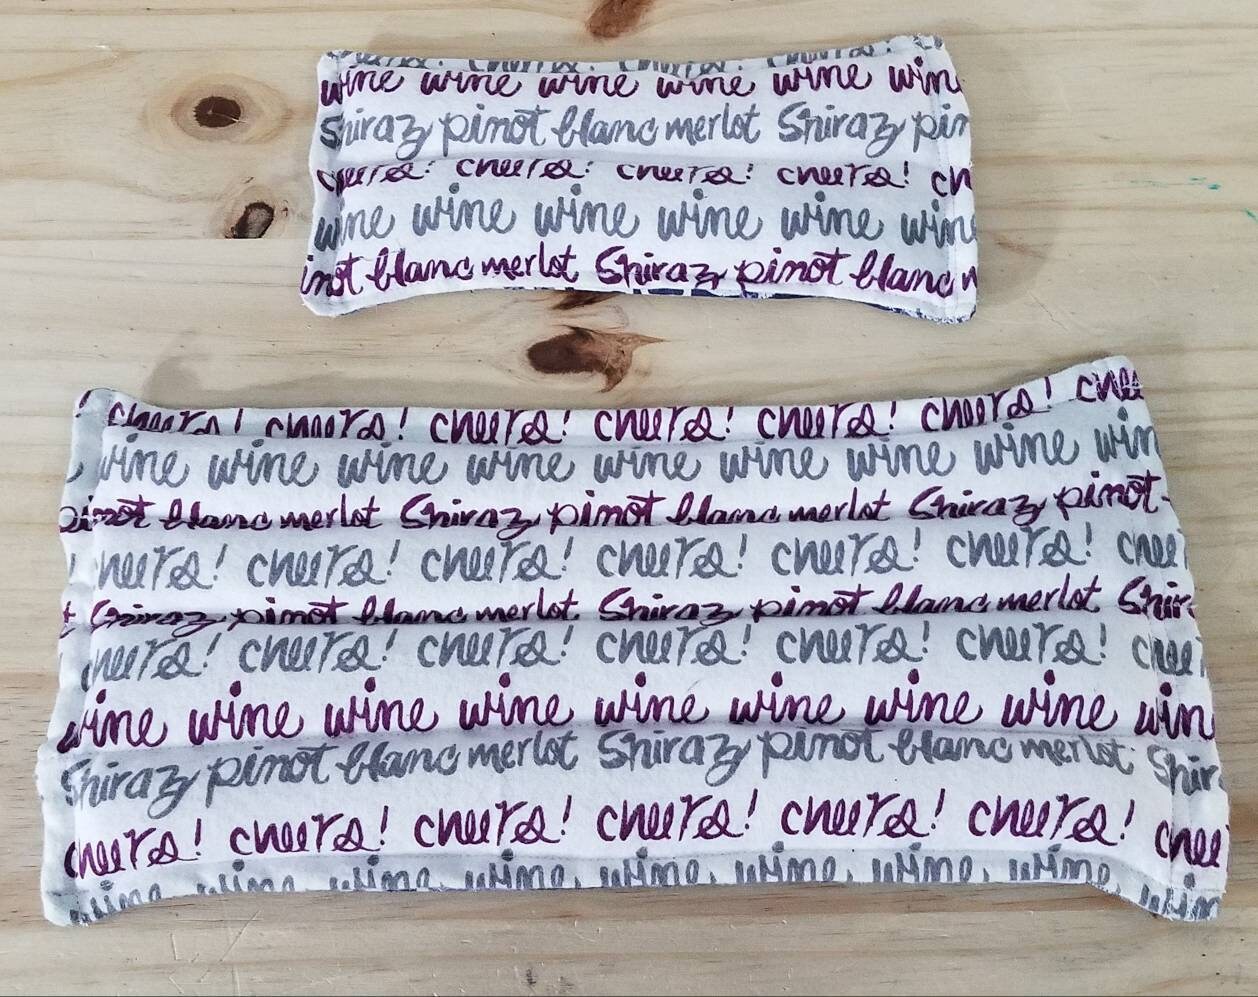 wine wine wine wine wine win
Shiraz pinot blanc merlot Shiraz pin
cheers! cheers! cheers! cheers! ch
wine wine wine wine wine win
inot blanc merlot Shiraz pinot blanc
cheers! cheers! cheers! cheers! cheers! cheers! chee
wine wine wine wine wine wine wine wine win
pinot blanc merlot Shiraz pinot blanc merlot Shiraz pinot
cheers! cheers! cheers! cheers! cheers! cheers! chee
Shiraz pinot blanc merlot Shiraz pinot blanc merlot Shir
cheers! cheers! cheers! cheers! cheers! cheers! chee
wine wine wine wine wine wine wine wine win
Shiraz pinot blanc merlot Shiraz pinot blanc merlot Shir
cheers! cheers! cheers! cheers! cheers! cheers! chee
wine wine wine wine wine wine wine wine win